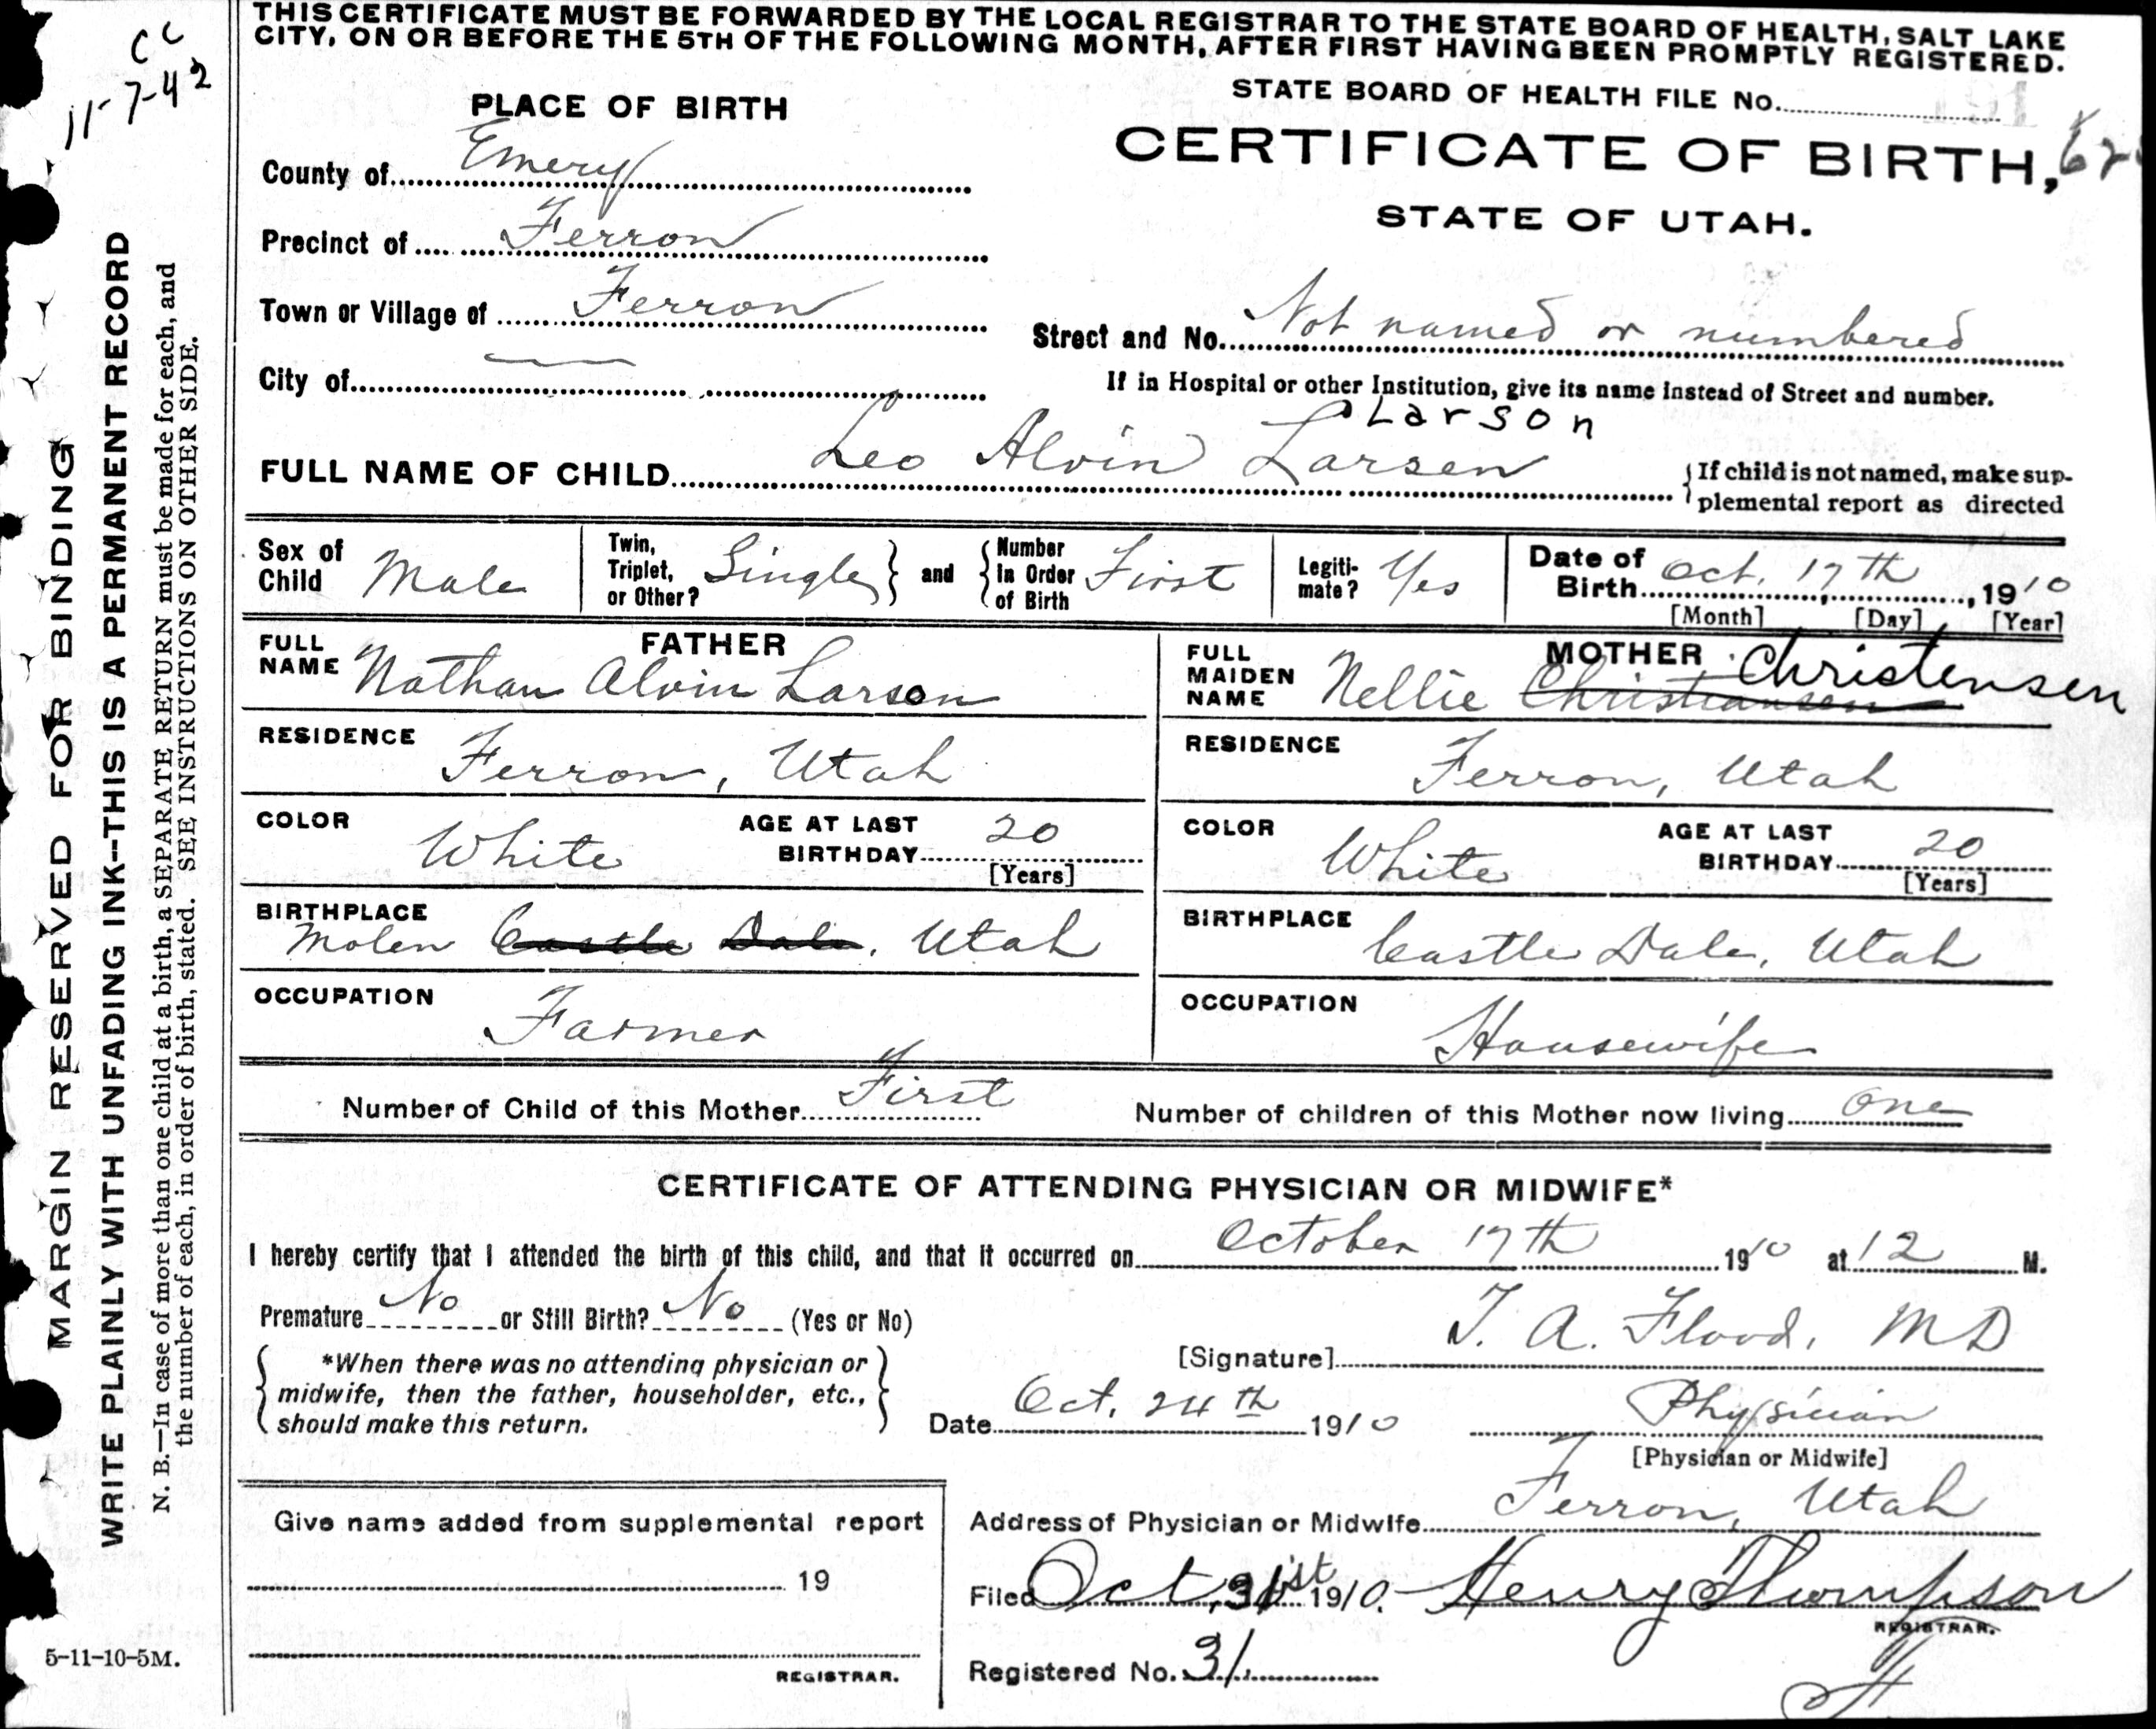 THIS CERTIFICATE MUST BE FORWARDED BY THE LOCAL REGISTRAR TO THE STATE BOARD OF HEALTH, SALT LAKE
CITY, ON OR BEFORE THE 5TH OF THE FOLLOWING MONTH, AFTER FIRST HAVING BEEN PROMPTLY REGISTERED.
CC
11-7-42
STATE BOARD OF HEALTH FILE No.
PLACE OF BIRTH
CERTIFICATE OF BIRTH,
STATE OF UTAH.
County of Emery
Precinct of Ferron
Town or Village of Ferron
Street and No. Not named or numbered
City of
If in Hospital or other Institution, give its name instead of Street and number.
Larson
FULL NAME OF CHILD Leo Alvin Larsen
{If child is not named, make sup-
plemental report as directed
Sex of Child Male
Twin, Triplet, or Other? Single } and { Number in Order of Birth First
Legiti-mate? Yes
Date of Birth Oct. 17th, 1910
[Month] [Day] [Year]
FATHER
FULL NAME Nathan Alvin Larson
MOTHER
FULL MAIDEN NAME Nellie Christiansen Christensen
RESIDENCE Ferron, Utah
RESIDENCE Ferron, Utah
COLOR White AGE AT LAST BIRTHDAY 20 [Years]
COLOR White AGE AT LAST BIRTHDAY 20 [Years]
BIRTHPLACE Molen Castle Dale, Utah
BIRTHPLACE Castle Dale, Utah
OCCUPATION Farmer
OCCUPATION Housewife
Number of Child of this Mother First Number of children of this Mother now living one
CERTIFICATE OF ATTENDING PHYSICIAN OR MIDWIFE*
I hereby certify that I attended the birth of this child, and that it occurred on October 17th 1910 at 12 M.
Premature No or Still Birth? No (Yes or No)
*When there was no attending physician or
midwife, then the father, householder, etc.,
should make this return.
[Signature] T. A. Flood, MD
Date Oct. 24th 1910 Physician
[Physician or Midwife]
Address of Physician or Midwife Ferron, Utah
Give name added from supplemental report
19
REGISTRAR.
Filed Oct, 31st 1910. Henry Thompson
REGISTRAR.
Registered No. 31
5-11-10-5M.
MARGIN RESERVED FOR BINDING
WRITE PLAINLY WITH UNFADING INK--THIS IS A PERMANENT RECORD
N. B.—In case of more than one child at a birth, a SEPARATE RETURN must be made for each, and
the number of each, in order of birth, stated. SEE INSTRUCTIONS ON OTHER SIDE.